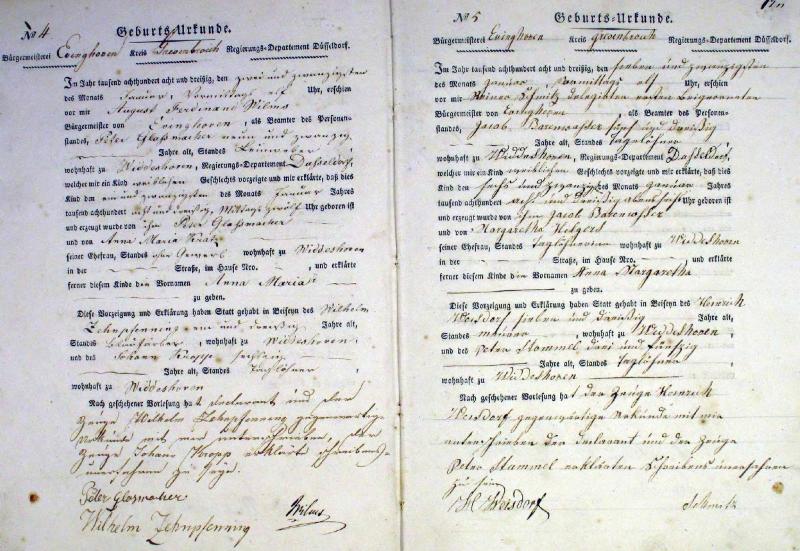 No 4
Geburts-Urkunde.
Bürgermeisterei Evinghoven Kreis Grevenbroich Regierungs-Departement Düsseldorf.
Im Jahr tausend achthundert acht und dreißig, den zwei und zwanzigsten
des Monats Januar, Vormittags elf Uhr, erschien
vor mir August Ferdinand Wilms
Bürgermeister von Evinghoven, als Beamter des Personen-
standes, Peter Glasmacher neun und zwanzig
Jahre alt, Standes Leinweber
wohnhaft zu Widdeshoven, Regierungs-Departement Düsseldorf,
welcher mir ein Kind weiblichen Geschlechts vorzeigte und mir erklärte, daß dies
Kind den ein und zwanzigsten des Monats Januar Jahrs
tausend achthundert acht und dreißig, Mittags zwölf Uhr geboren ist
und erzeugt wurde von ihm Peter Glasmacher
und von Anna Maria
seiner Ehefrau, Standes ohne Gewerb wohnhaft zu Widdeshoven
in der Straße, im Hause Nro. , und erklärte
ferner diesem Kinde den Vornamen Anna Maria
zu geben.
Diese Vorzeigung und Erklärung haben Statt gehabt in Beiseyn des Wilhelm
Zehnpfenning ein und dreißig Jahre alt,
Standes Blaufärber, wohnhaft zu Widdeshoven
und des Johann Kropp sechzig
Jahre alt, Standes Taglöhner,
wohnhaft zu Widdeshoven
Nach geschehener Vorlesung hat declarant und der
Zeuge Wilhelm Zehnpfenning gegenwärtige
Urkunde mit mir unterschrieben, der
Zeuge Johann Kropp erklärte schreibens
unerfahren zu seyn.
Peter Glasmacher
Wilhelm Zehnpfenning Wilms
No 5
Geburts-Urkunde.
Bürgermeisterei Evinghoven Kreis Grevenbroich Regierungs-Departement Düsseldorf.
Im Jahr tausend achthundert acht und dreißig, den sieben und zwanzigsten
des Monats Januar Vormittags elf Uhr, erschien
vor mir Schmitz delegirten ersten Beigeordneten
Bürgermeister von Evinghoven, als Beamter des Personen-
standes, Jacob Barenwasser fünf und dreißig
Jahre alt, Standes Taglöhner
wohnhaft zu Widdeshoven, Regierungs-Departement Düsseldorf,
welcher mir ein Kind weiblichen Geschlechts vorzeigte und mir erklärte, daß dies
Kind den sechs und zwanzigsten des Monats Januar Jahrs
tausend achthundert acht und dreißig Abends Uhr geboren ist
und erzeugt wurde von ihm Jacob Barenwasser
und von Margaretha
seiner Ehefrau, Standes Taglöhnerin wohnhaft zu Widdeshoven
in der Straße, im Hause Nro. , und erklärte
ferner diesem Kinde den Vornamen Anna Margaretha
zu geben.
Diese Vorzeigung und Erklärung haben Statt gehabt in Beiseyn des Heinrich
Weisdorf sieben und dreißig Jahre alt,
Standes , wohnhaft zu Widdeshoven,
und des Peter Stammel drei und fünfzig
Jahre alt, Standes Taglöhner
wohnhaft zu Widdeshoven
Nach geschehener Vorlesung hat der Zeuge Heinrich
Weisdorf gegenwärtige Urkunde mit mir
unterschrieben der Declarant und der Zeuge
Peter Stammel erklärten Schreibens unerfahren
zu sein
H Weisdorf Schmitz